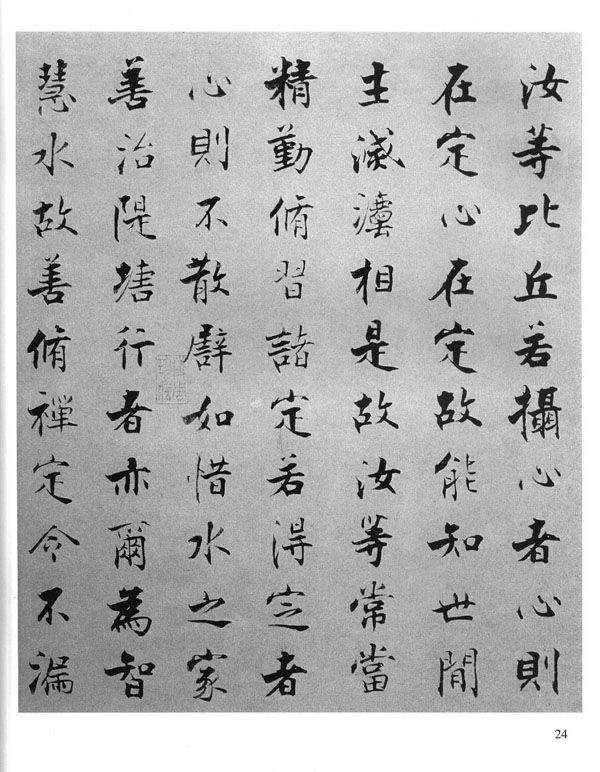 汝等比丘若攝心者心則
在定心在定故能知世閒
生滅灋相是故汝等常當
精勤脩習諸定若得定者
心則不散譬如惜水之家
善治隄塘行者亦爾為智
慧水故善脩禪定令不漏
24